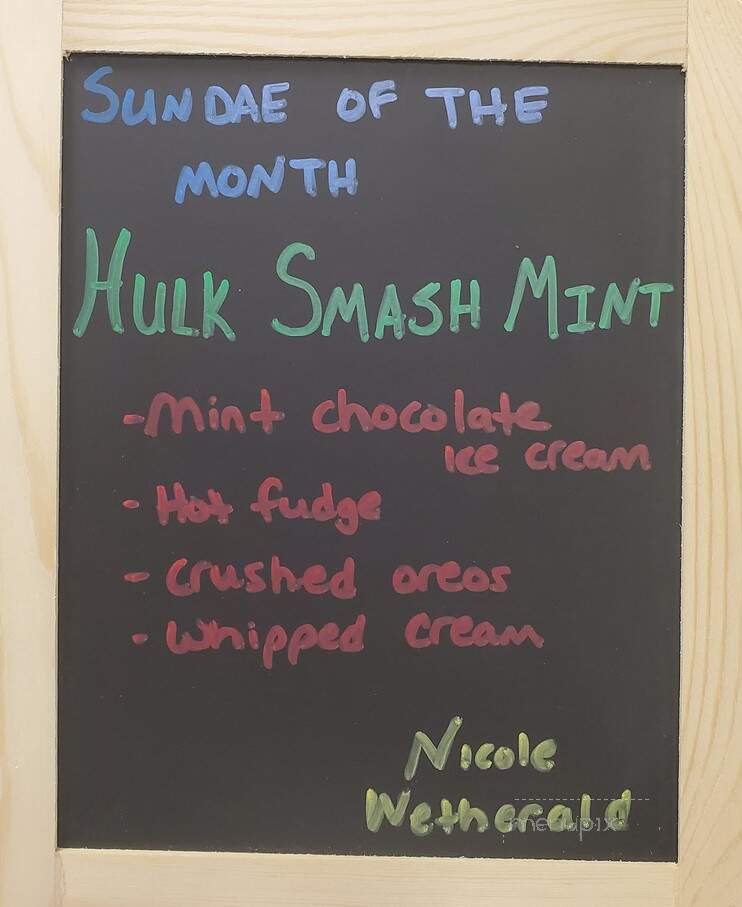 SUNDAE OF THE
MONTH
HULK SMASH MINT
- Mint chocolate
ice cream
- Hot fudge
- crushed oreos
- whipped cream
Nicole
Wetherald
menupix